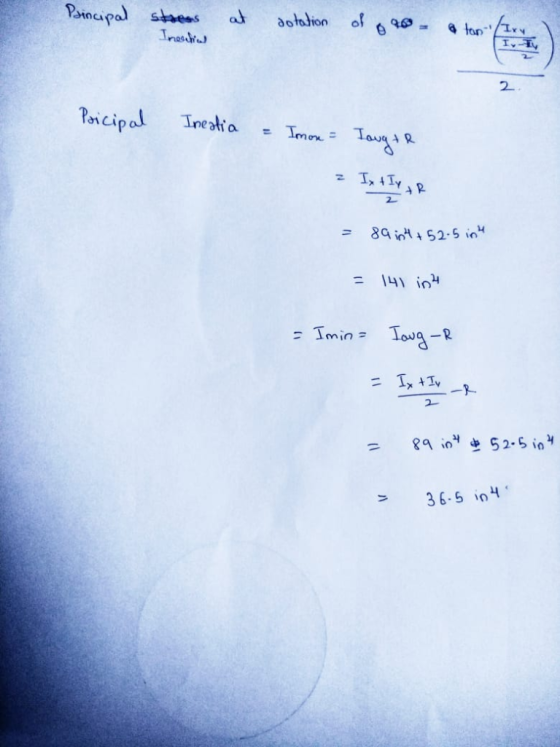 Principal at rotation of θ = tan⁻¹(Ixy / ((Ix - Iy) / 2)) / 2
Inertia
Pricipal Inertia = Imax = Iavg + R
= (Ix + Iy) / 2 + R
= 89 in⁴ + 52.5 in⁴
= 141 in⁴
= Imin = Iavg - R
= (Ix + Iy) / 2 - R
= 89 in⁴ - 52.5 in⁴
= 36.5 in⁴